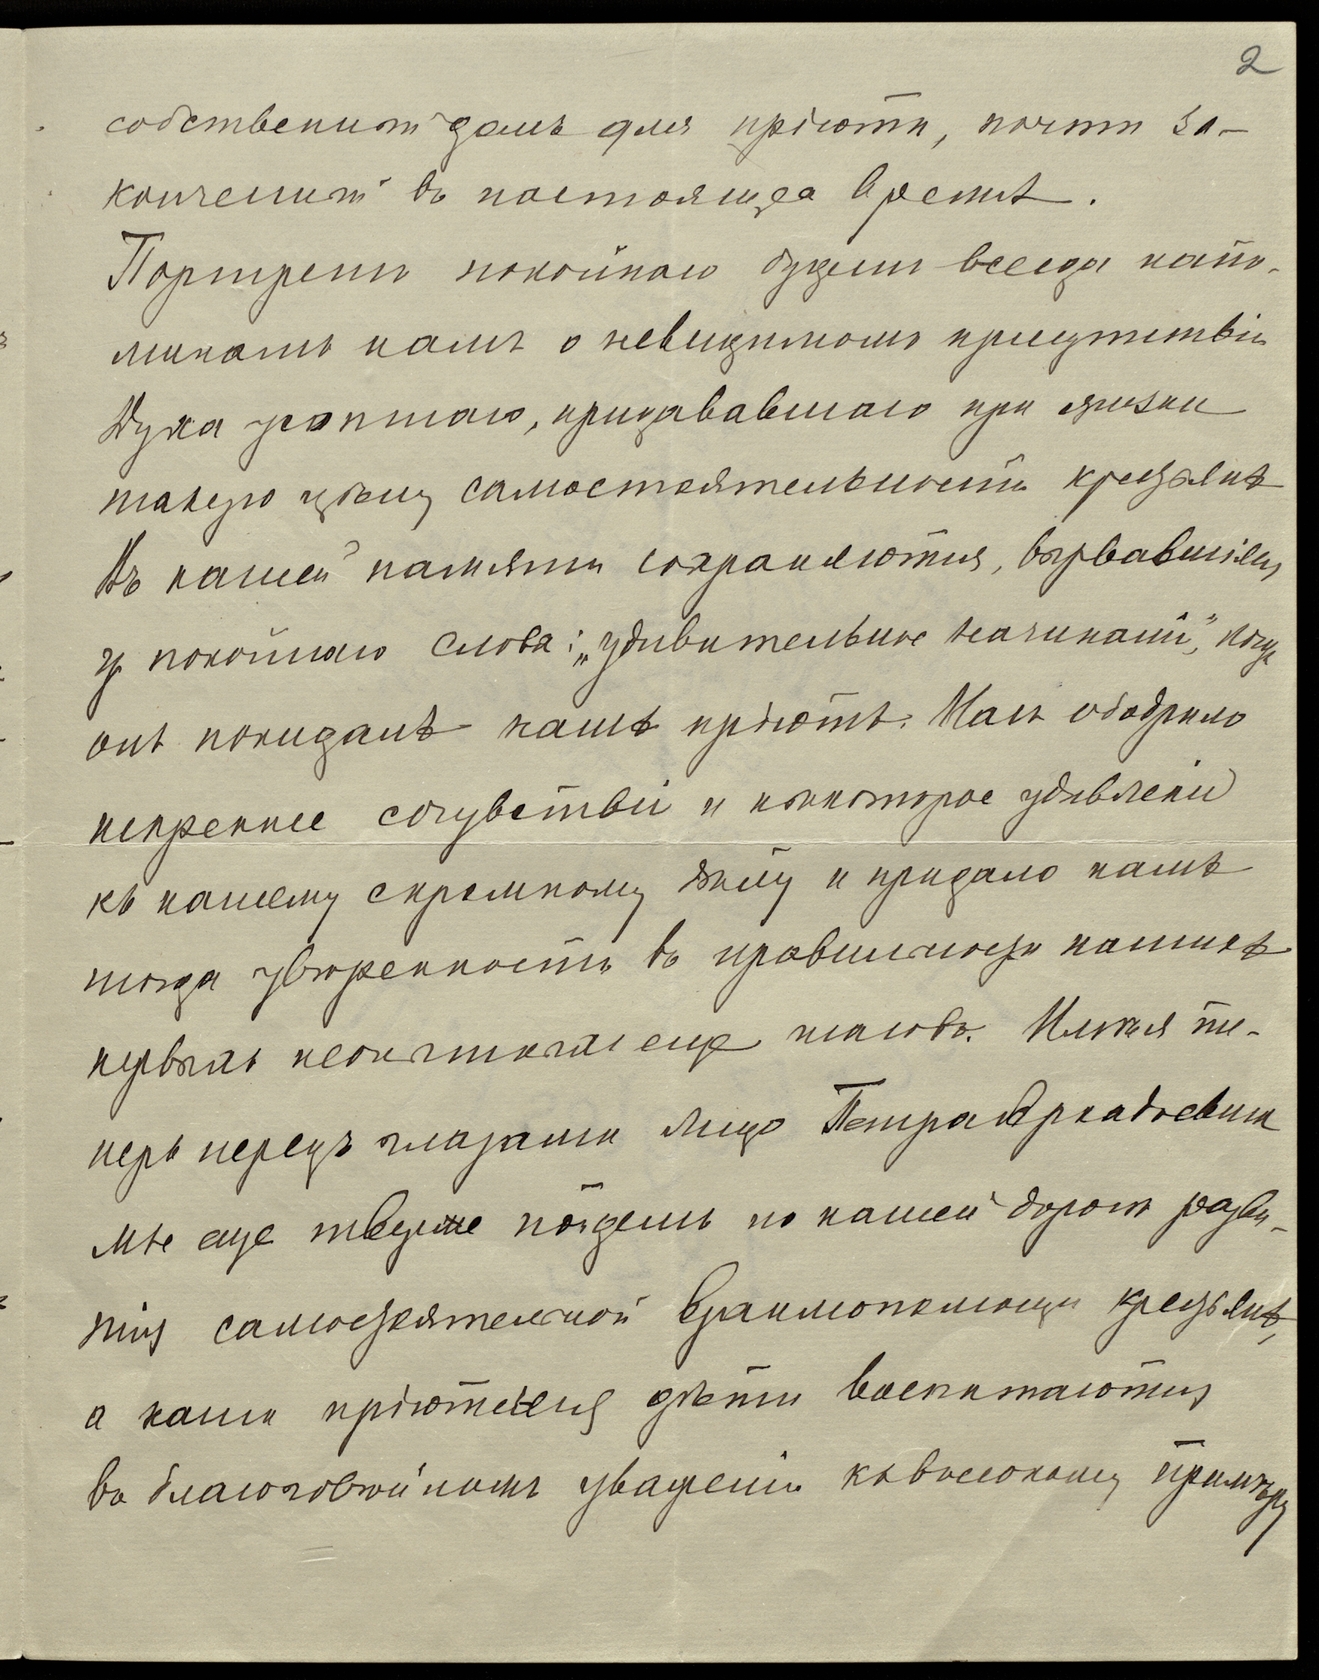 2
собственный домъ для пріюта, почти за-
конченный въ настоящее время.
Портретъ покойнаго будетъ всегда напо-
минать намъ о невидимомъ присутствіи
Духа усопшаго, придававшаго при жизни
такую цѣну самостоятельности крестьянъ
Въ нашей памяти сохраняются, вырвавшіяся
у покойнаго слова: „удивительное начинаніе", когда
онъ покидалъ нашъ пріютъ. Насъ ободрило
искреннее сочувствіе и нѣкоторое удивленіе
къ нашему скромному дѣлу и придало намъ
тогда увѣренность въ правильности нашихъ
первыхъ неопытныхъ еще шаговъ. Имѣя те-
перь передъ глазами лицо Петра Аркадьевича
мы еще тверже пойдемъ по нашей дорогѣ разви-
тія самодѣятельной взаимопомощи крестьянъ,
а наши пріютскія дѣти воспитаются
въ благоговѣйномъ уваженіи къ высокому примѣру